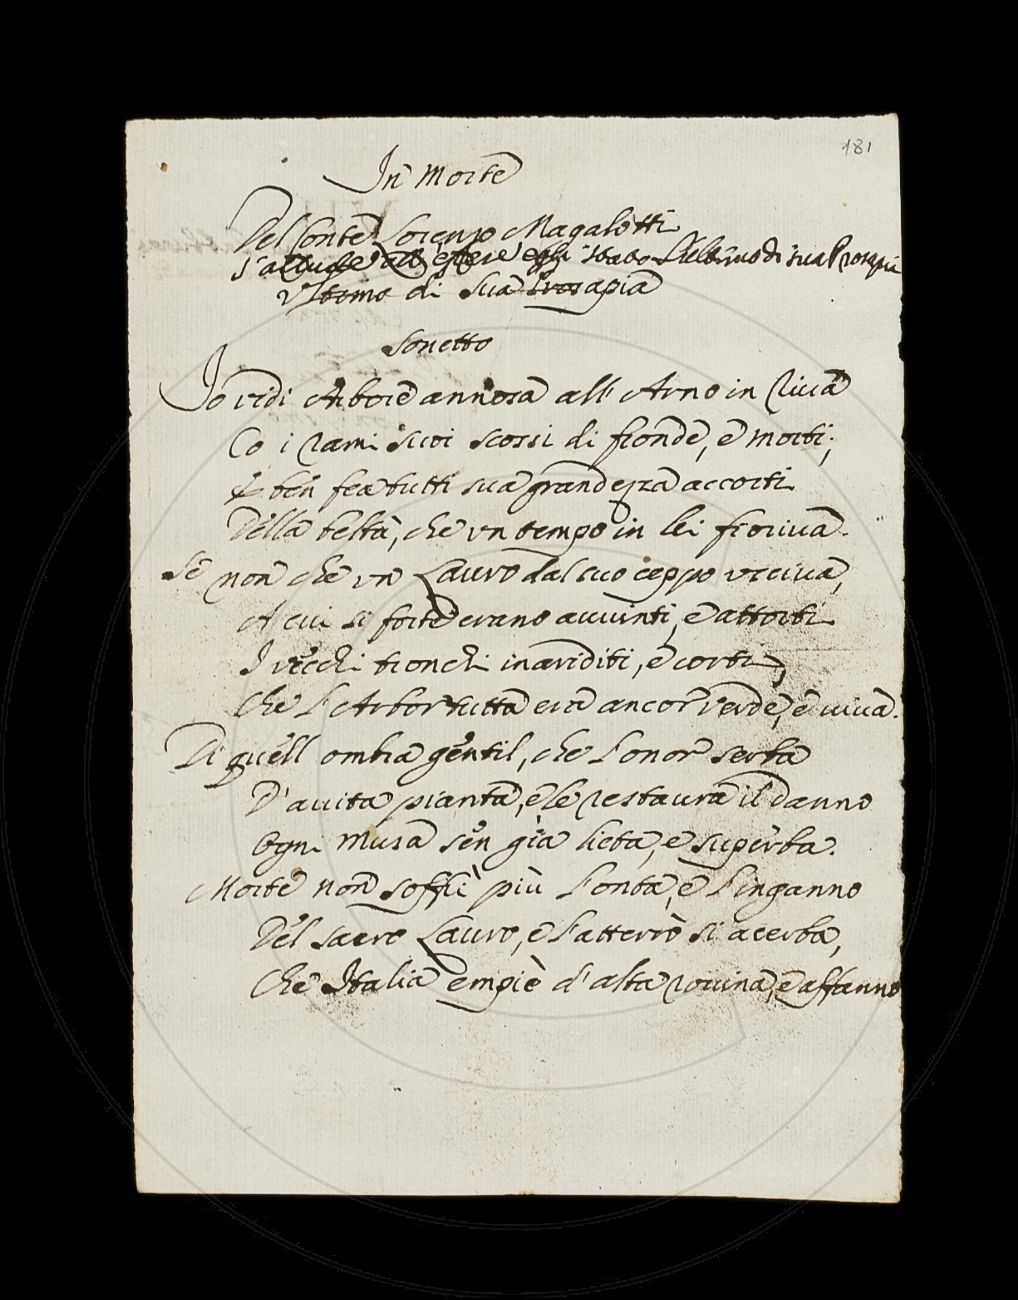 181
In Morte
Del Conte Lorenzo Magalotti
s'allude all'essere egli stato l'ultimo di sua Prosapia
Vltimo di sua Prosapia
Sonetto
Io vidi Arbore annosa all'Arno in riva
Co i rami suoi scossi di fronde, e morti;
E ben fea tutti sua grandezza accorti
Della beltà, che vn tempo in lei fioriva.
Se non che vn Lauro dal suo ceppo vsciva,
A cui sì forte erano avvinti, e attorti
I vecchi tronchi inariditi, e corti,
Che l'Arbor tutta era ancor verde, e viva.
Di quell'ombra gentil, che l'onor serba
D'avita pianta, e le restaura il danno
Ogni Musa sen gìa lieta, e superba.
Morte non soffrì più l'onta, e l'inganno
Del sacro Lauro, e l'atterrò sì acerba,
Che Italia empiè d'alta rovina, e affanno